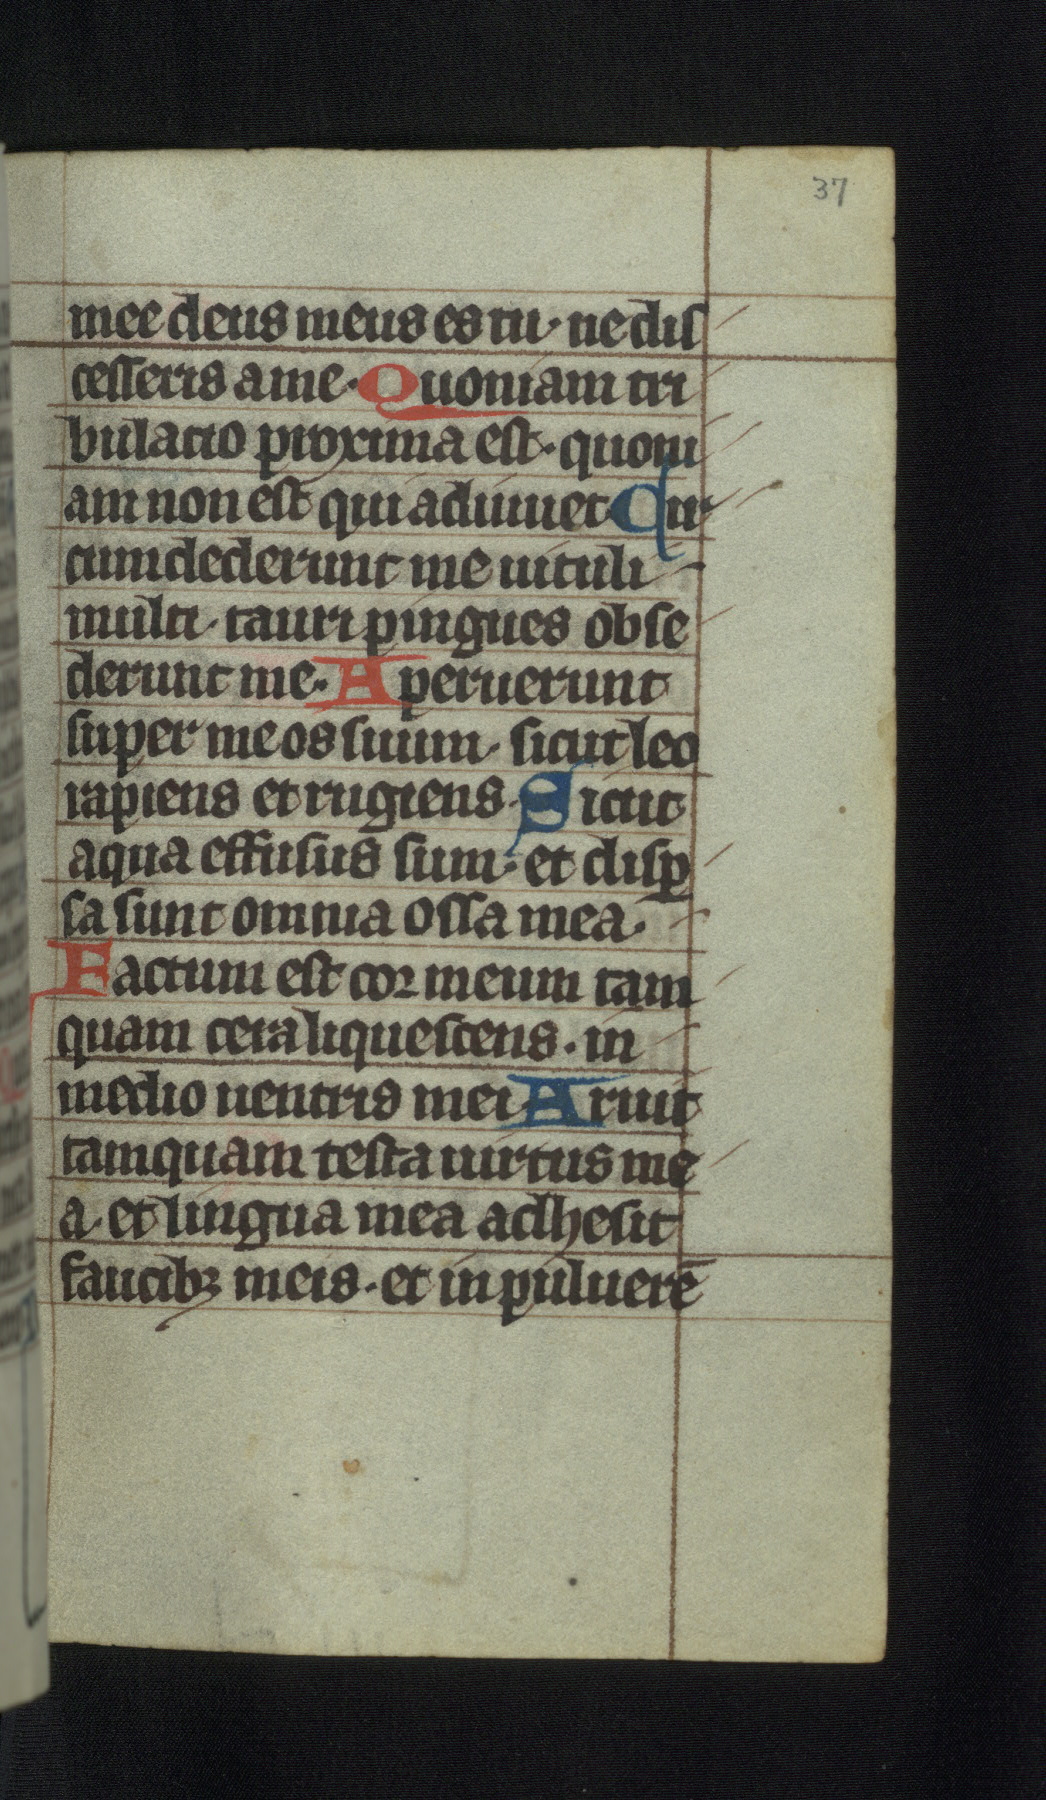 37
mee deus meus es tu · ne dis
cesseris a me · Quoniam tri
bulacio proxima est · quoni
am non est qui adiuuet Cir
cumdederunt me uituli
multi · tauri pingues obse
derunt me · Aperuerunt
super me os suum · sicut leo
rapiens et rugiens · Sicut
aqua effusus sum · et disꝑ
sa sunt omnia ossa mea ·
Factum est cor meum tam
quam cera liquescens · in
medio uentris mei Aruit
tamquam testa uirtus me
a · et lingua mea adhesit
faucibꝫ meis · et in puluerē